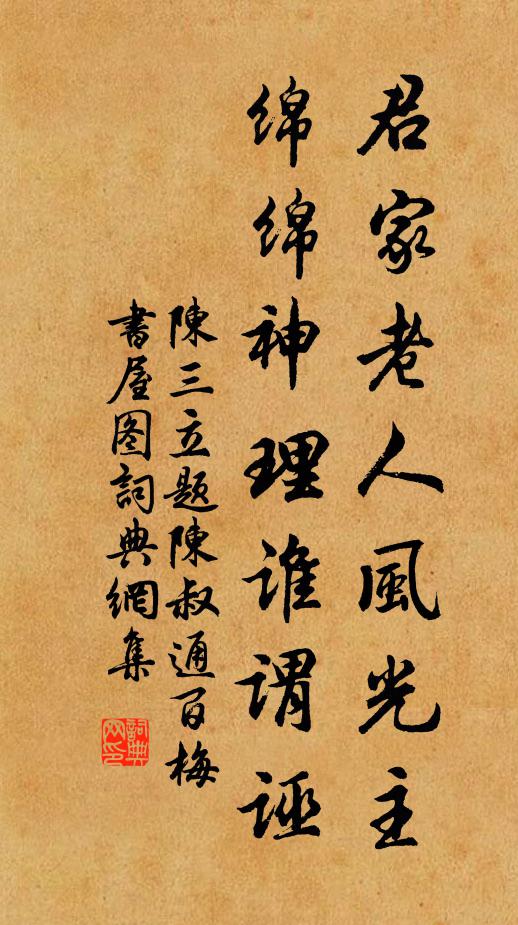 君家老人風光主
绵绵神理谁谓诬
陳三立题陳叔通百梅
書屋图詞典網集
詞典网印